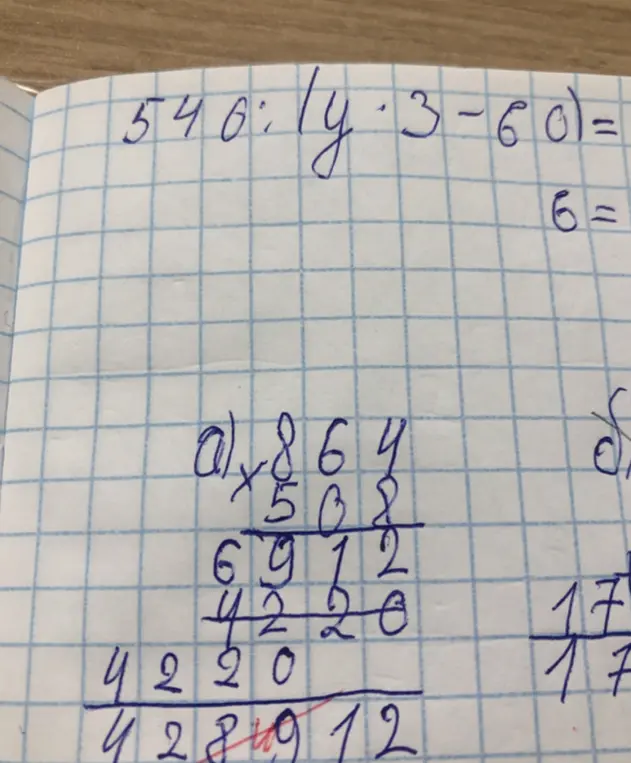 546:(y·3-60)=
6=
а) ×864
508
6912
4220
4220
428912
б)
17
17